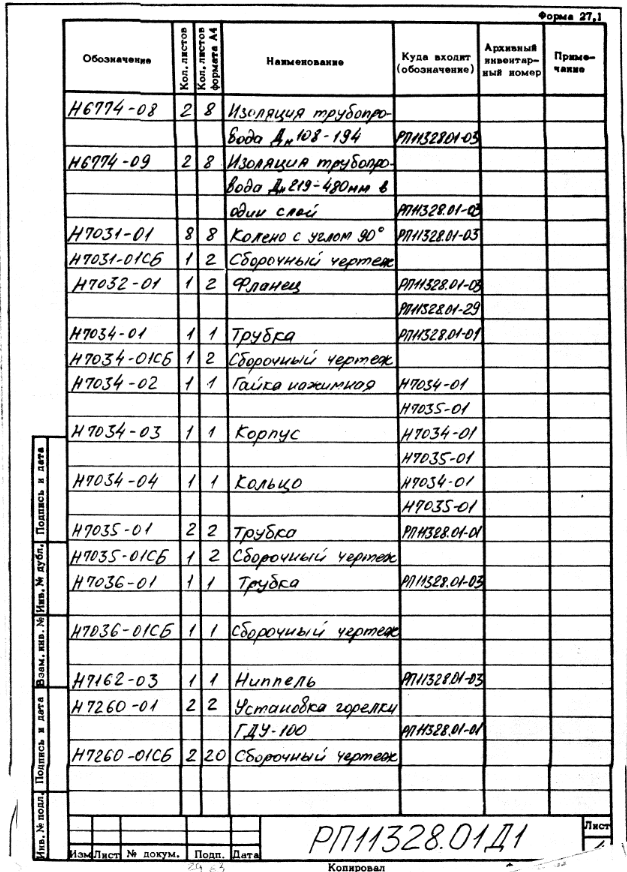 Форма 27,1
Обозначение | Кол. листов | Кол. листов формата А4 | Наименование | Куда входит (обозначение) | Архивный инвентар-ный номер | Приме-чание
Н6774-08 2 8 Изоляция трубопро-
вода Дн 108-194 РП11328.01-03
Н6774-09 2 8 Изоляция трубопро-
вода Дн 219-480мм в
один слой РП11328.01-03
Н7031-01 8 8 Колено с углом 90° РП11328.01-03
Н7031-01СБ 1 2 Сборочный чертеж
Н7032-01 1 2 Фланец РП11328.01-03
РП11328.01-29
Н7034-01 1 1 Трубка РП11328.01-01
Н7034-01СБ 1 2 Сборочный чертеж
Н7034-02 1 1 Гайка нажимная Н7034-01
Н7035-01
Н7034-03 1 1 Корпус Н7034-01
Н7035-01
Н7034-04 1 1 Кольцо Н7034-01
Н7035-01
Н7035-01 2 2 Трубка РП11328.01-01
Н7035-01СБ 1 2 Сборочный чертеж
Н7036-01 1 1 Трубка РП11328.01-03
Н7036-01СБ 1 1 Сборочный чертеж
Н7162-03 1 1 Ниппель РП11328.01-03
Н7260-01 2 2 Установка горелки
ГДУ-100 РП11328.01-01
Н7260-01СБ 2 20 Сборочный чертеж
Инв. № подл. Подпись и дата Взам. инв. № Инв. № дубл. Подпись и дата
РП11328.01Д1
Лист
Изм Лист № докум. Подп. Дата
Копировал